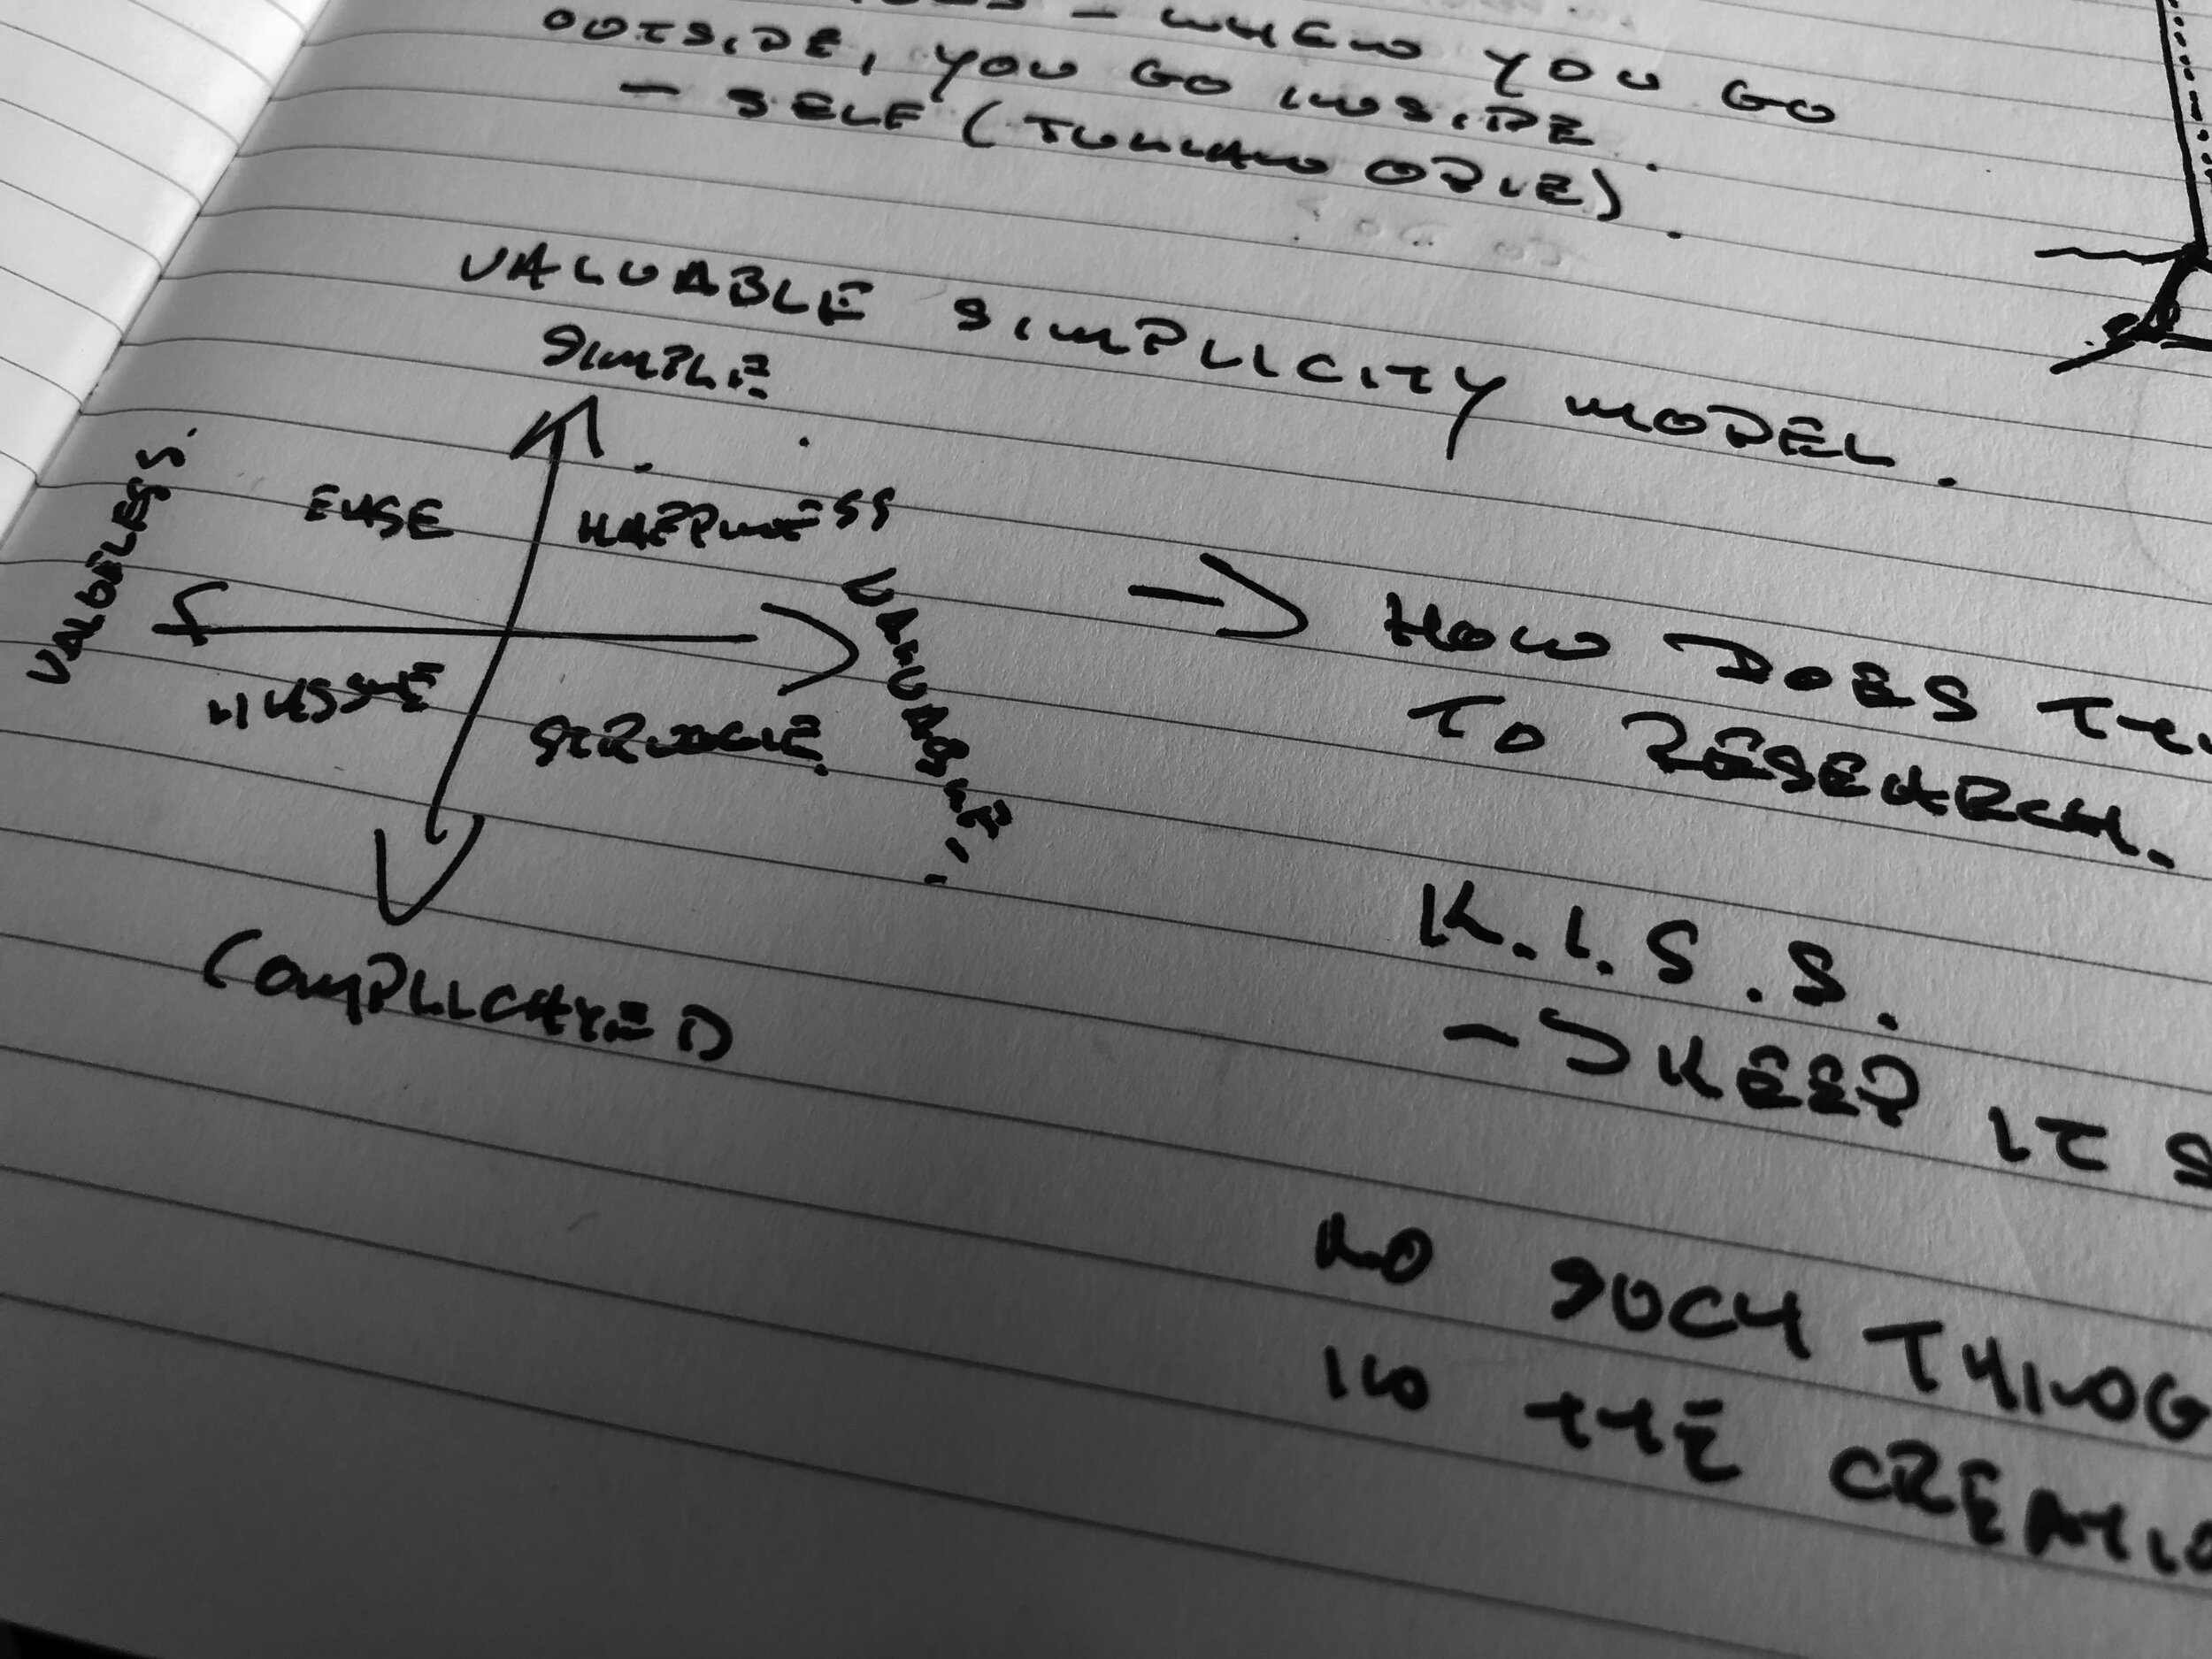 - WHEN YOU GO
OUTSIDE, YOU GO INSIDE.
- SELF (
VALUABLE SIMPLICITY MODEL.
SIMPLE
VALUELESS.
EASE
HAPPINESS
VALUABLE
HASSLE
STRUGGLE.
COMPLICATED
→ HOW DOES
TO RESEARCH.
K.I.S.S.
→ KEEP IT S
NO SUCH THING
IN THE CREATIO